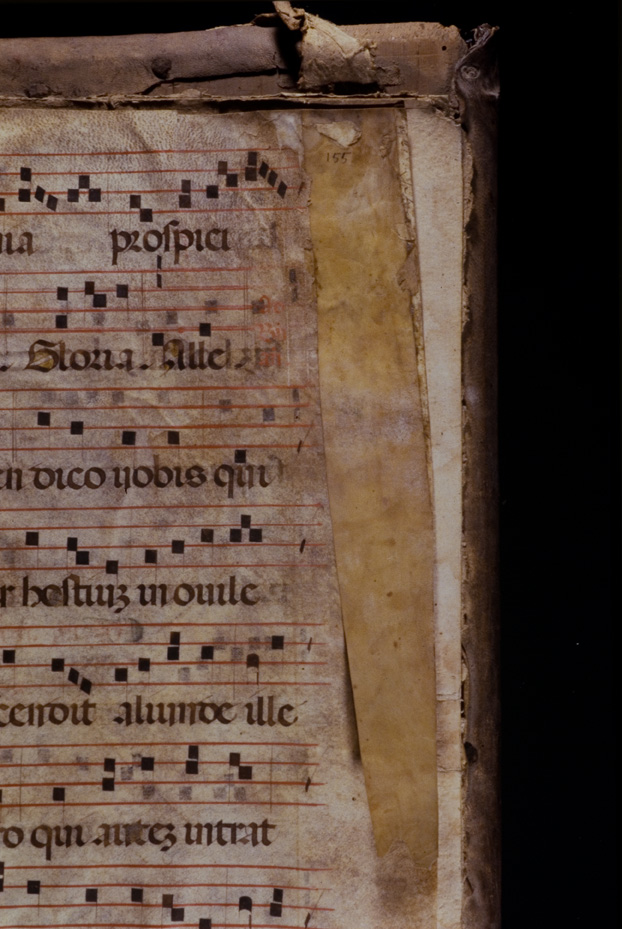 155
nia prospici
Gloria . Allel
en dico vobis qui
r hostiuʒ in ouile
cendit aliunde ille
ro qui auteʒ intrat